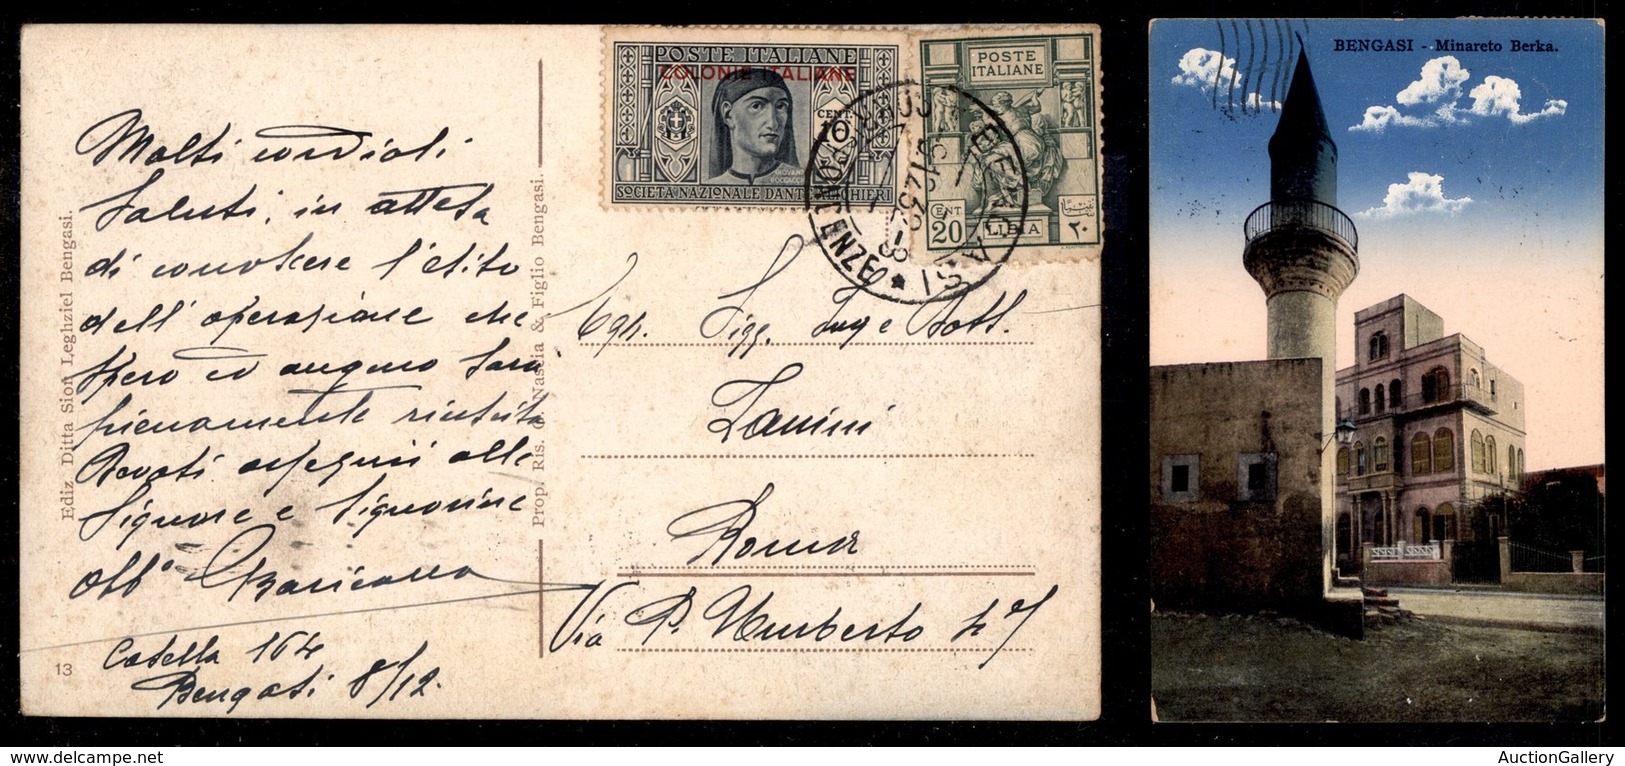 POSTE ITALIANE
COLONIE ITALIANE
CENT
10
GIOVANNI
BOCCACCIO
SOCIETÀ NAZIONALE DANTE ALIGHIERI
POSTE
ITALIANE
CENT
20
LIBIA
٢٠
BENGASI
Molti cordiali
Saluti, in attesa
di conoscere l'esito
dell'operazione che
spero ed auguro sarà
pienamente riuscita
Devoti ossequi alle
Signore e Signorine
Casella 164
Bengasi 8/12.
Ediz. Ditta Sion Leghziel Bengasi.
Prop. Ris. & Figlio Bengasi.
13
Egr. Sigg. Dott.
Zanini
Roma
Via P. Umberto
BENGASI - Minareto Berka.
AuctionGallery